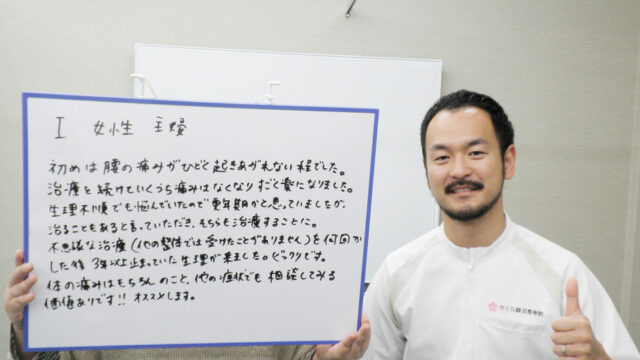 I 女性 主婦
初めは腰の痛みがひどく起きあがれない程でした。
治療を続けていくうち痛みはなくなりすごく楽になりました。
生理不順でも悩んでいたので更年期かと思っていましたが、
治ることもあると言っていただき、そちらも治療することに。
不思議な治療(他の整体では受けたことがありません)を何回か
した後 3年以上止まっていた生理が来ました。ビックリです。
体の痛みはもちろんのこと、他の症状でも相談してみる
価値ありです!! オススメします。
さくら鍼灸整骨院